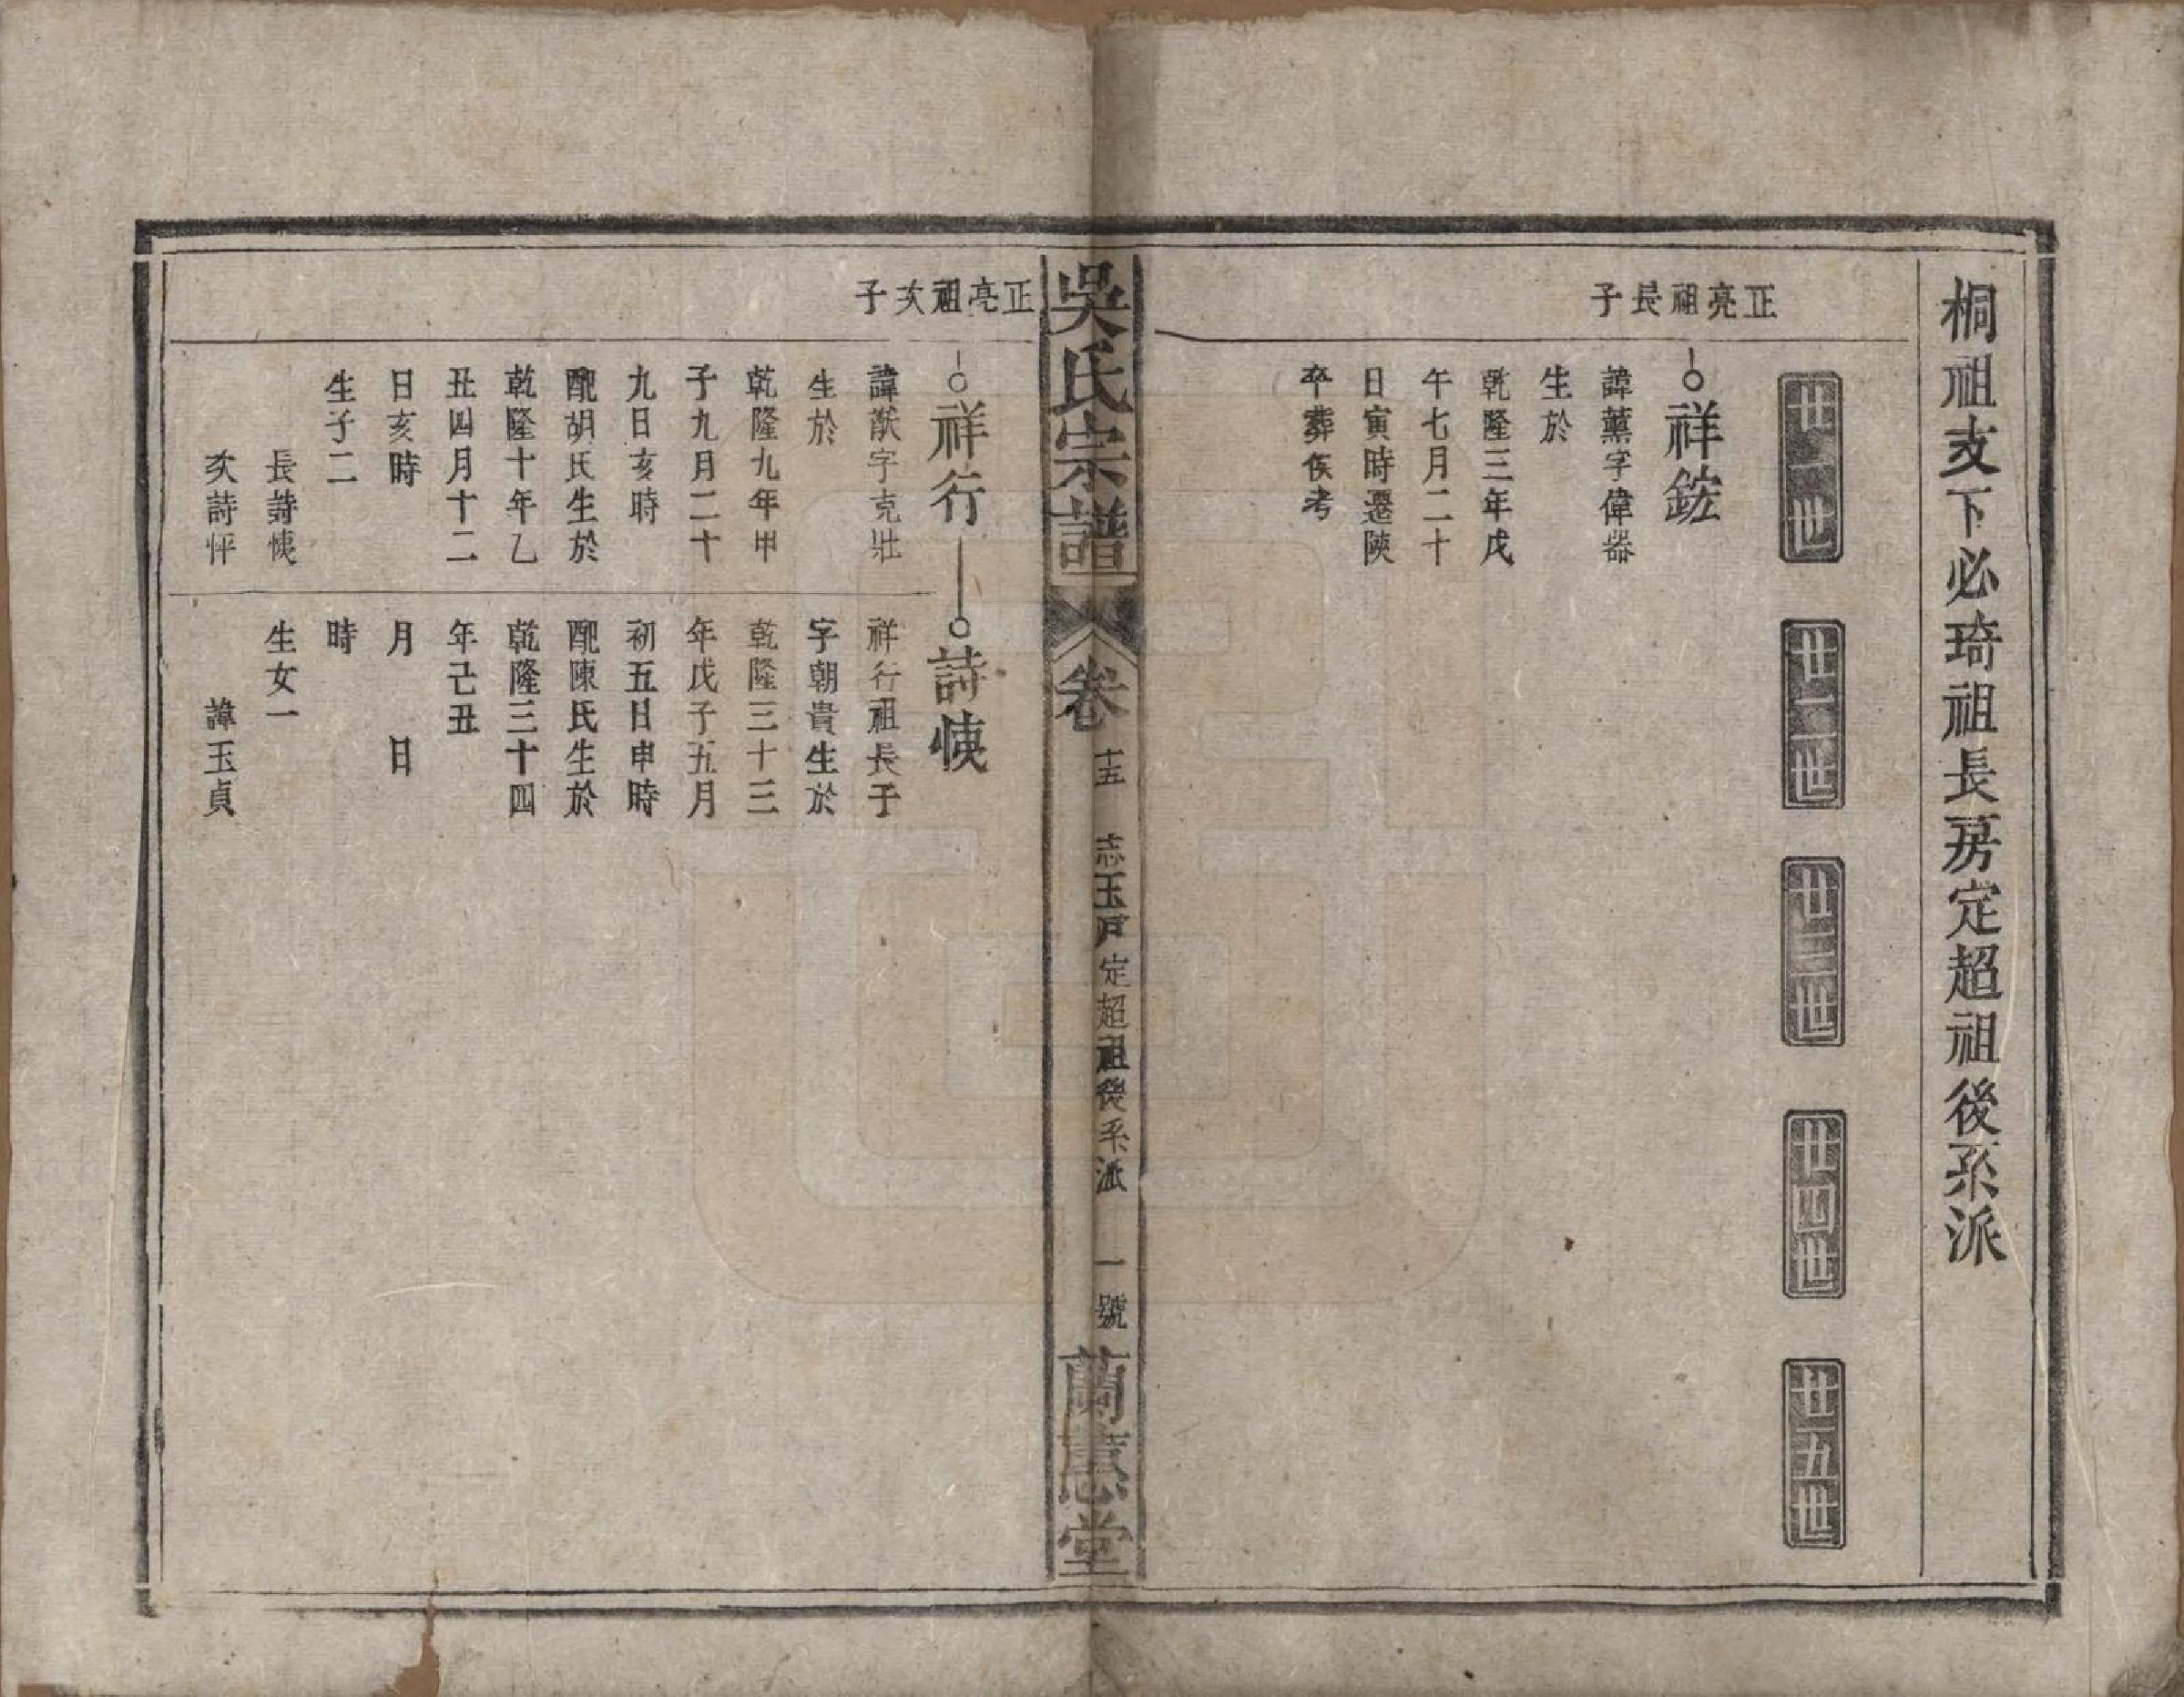 桐祖支下必琦祖長房定超祖後系派
廿一世
廿二世
廿三世
廿四世
廿五世
正亮祖長子
祥鋐
諱薰字偉器
生於
乾隆三年戊
午七月二十
日寅時遷陝
卒葬俟考
吳氏宗譜
卷
十五
志玉戶定超祖後系派
一號
蘭蕙堂
正亮祖次子
祥行
諱猷字克壯
生於
乾隆九年甲
子九月二十
九日亥時
配胡氏生於
乾隆十年乙
丑四月十二
日亥時
生子二
長詩㥦
次詩怦
詩㥦
祥行祖長子
字朝貴生於
乾隆三十三
年戊子五月
初五日申時
配陳氏生於
乾隆三十四
年己丑
月 日
時
生女一
諱玉貞